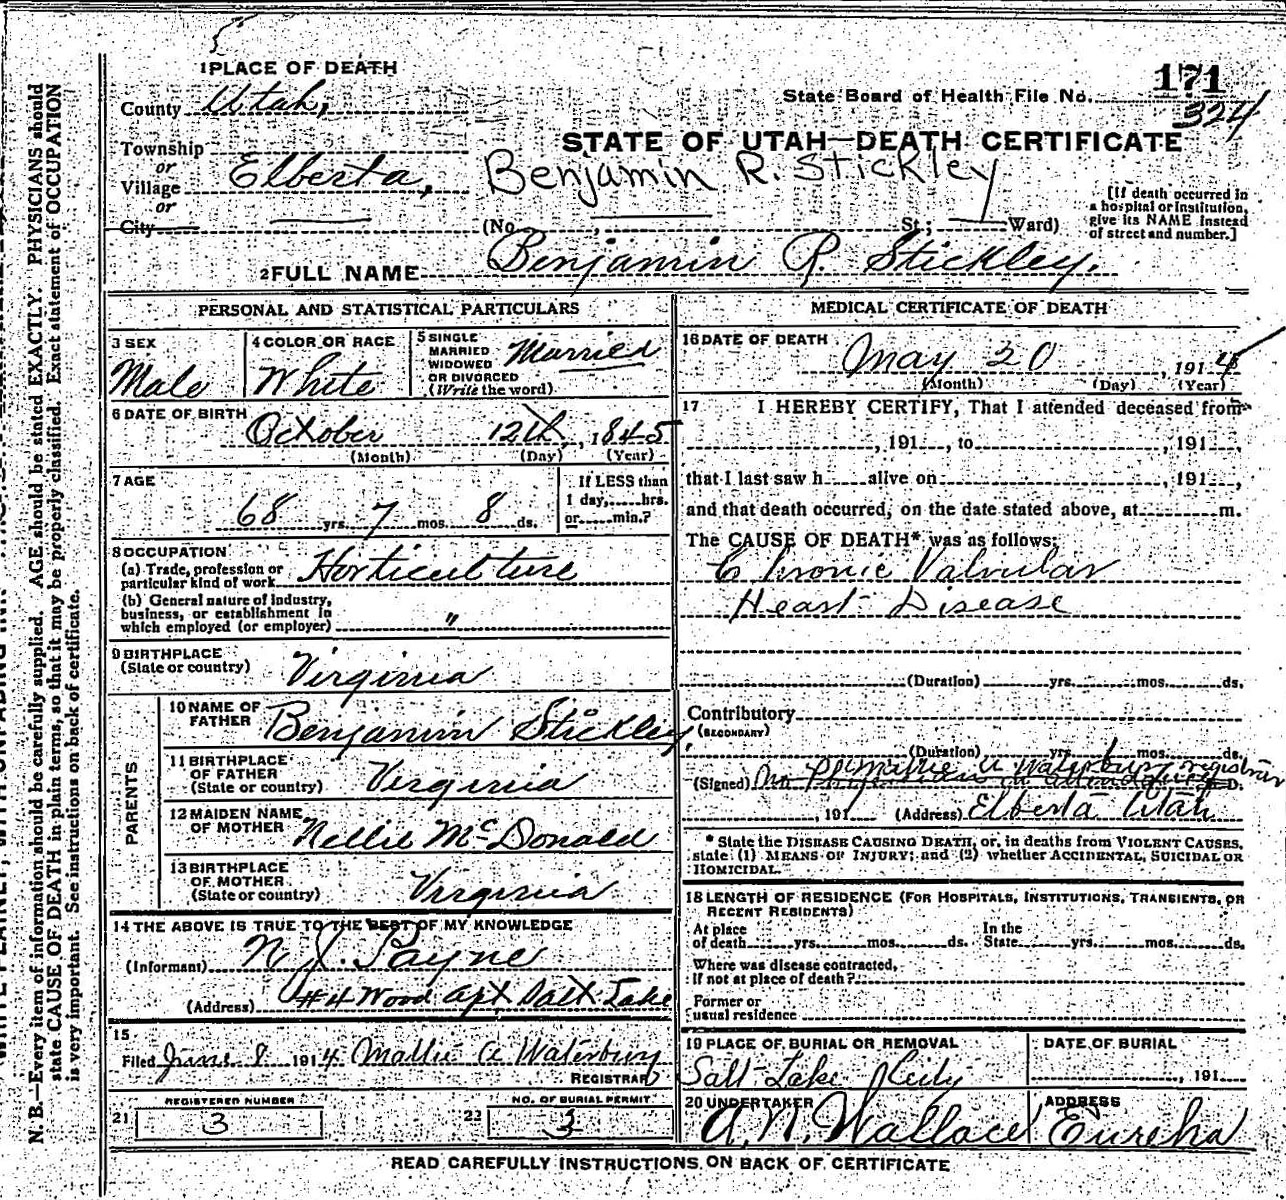 1 PLACE OF DEATH
County Utah,
Township
or
Village Elberta,
or
City
State Board of Health File No. 171
324
STATE OF UTAH—DEATH CERTIFICATE
Benjamin R. Stickley
(No. , St; Ward)
[If death occurred in
a hospital or institution,
give its NAME instead
of street and number.]
2 FULL NAME Benjamin R. Stickley.
PERSONAL AND STATISTICAL PARTICULARS
3 SEX
Male
4 COLOR OR RACE
White
5 SINGLE
MARRIED
WIDOWED
OR DIVORCED
(Write the word)
Married
6 DATE OF BIRTH
October 12th, 1845
(Month) (Day) (Year)
7 AGE
68 yrs. 7 mos. 8 ds.
If LESS than
1 day, hrs.
or min.?
8 OCCUPATION
(a) Trade, profession or
particular kind of work Horticulture
(b) General nature of industry,
business, or establishment in
which employed (or employer) "
9 BIRTHPLACE
(State or country) Virginia
PARENTS
10 NAME OF
FATHER Benjamin Stickley
11 BIRTHPLACE
OF FATHER
(State or country) Virginia
12 MAIDEN NAME
OF MOTHER Nellie McDonald
13 BIRTHPLACE
OF MOTHER
(State or country) Virginia
14 THE ABOVE IS TRUE TO THE BEST OF MY KNOWLEDGE
(Informant) N. J. Payne
(Address) #4 Wood Apt Salt Lake
15
Filed June 8 1914 Mallie A Waterbury
REGISTRAR
REGISTERED NUMBER
21 3
NO. OF BURIAL PERMIT
22 3
MEDICAL CERTIFICATE OF DEATH
16 DATE OF DEATH
May 20, 1914
(Month) (Day) (Year)
17 I HEREBY CERTIFY, That I attended deceased from
, 191 , to , 191 ,
that I last saw h alive on , 191 ,
and that death occurred, on the date stated above, at m.
The CAUSE OF DEATH* was as follows:
Chronic Valvular
Heart Disease
(Duration) yrs. mos. ds.
Contributory
(SECONDARY)
(Duration) yrs. mos. ds.
A Waterbury registrar
(Signed) No Physician in attendance D.
, 191 (Address) Elberta Utah
* State the DISEASE CAUSING DEATH, or, in deaths from VIOLENT CAUSES,
state (1) MEANS OF INJURY; and (2) whether ACCIDENTAL, SUICIDAL OR
HOMICIDAL.
18 LENGTH OF RESIDENCE (FOR HOSPITALS, INSTITUTIONS, TRANSIENTS, OR
RECENT RESIDENTS)
At place
of death yrs. mos. ds.
In the
State yrs. mos. ds.
Where was disease contracted,
if not at place of death?
Former or
usual residence
19 PLACE OF BURIAL OR REMOVAL
Salt Lake City
DATE OF BURIAL
, 191
20 UNDERTAKER
A. N. Wallace
ADDRESS
Eureka
READ CAREFULLY INSTRUCTIONS ON BACK OF CERTIFICATE
N. B.—Every item of information should be carefully supplied. AGE should be stated EXACTLY. PHYSICIANS should
state CAUSE OF DEATH in plain terms, so that it may be properly classified. Exact statement of OCCUPATION
is very important. See instructions on back of certificate.